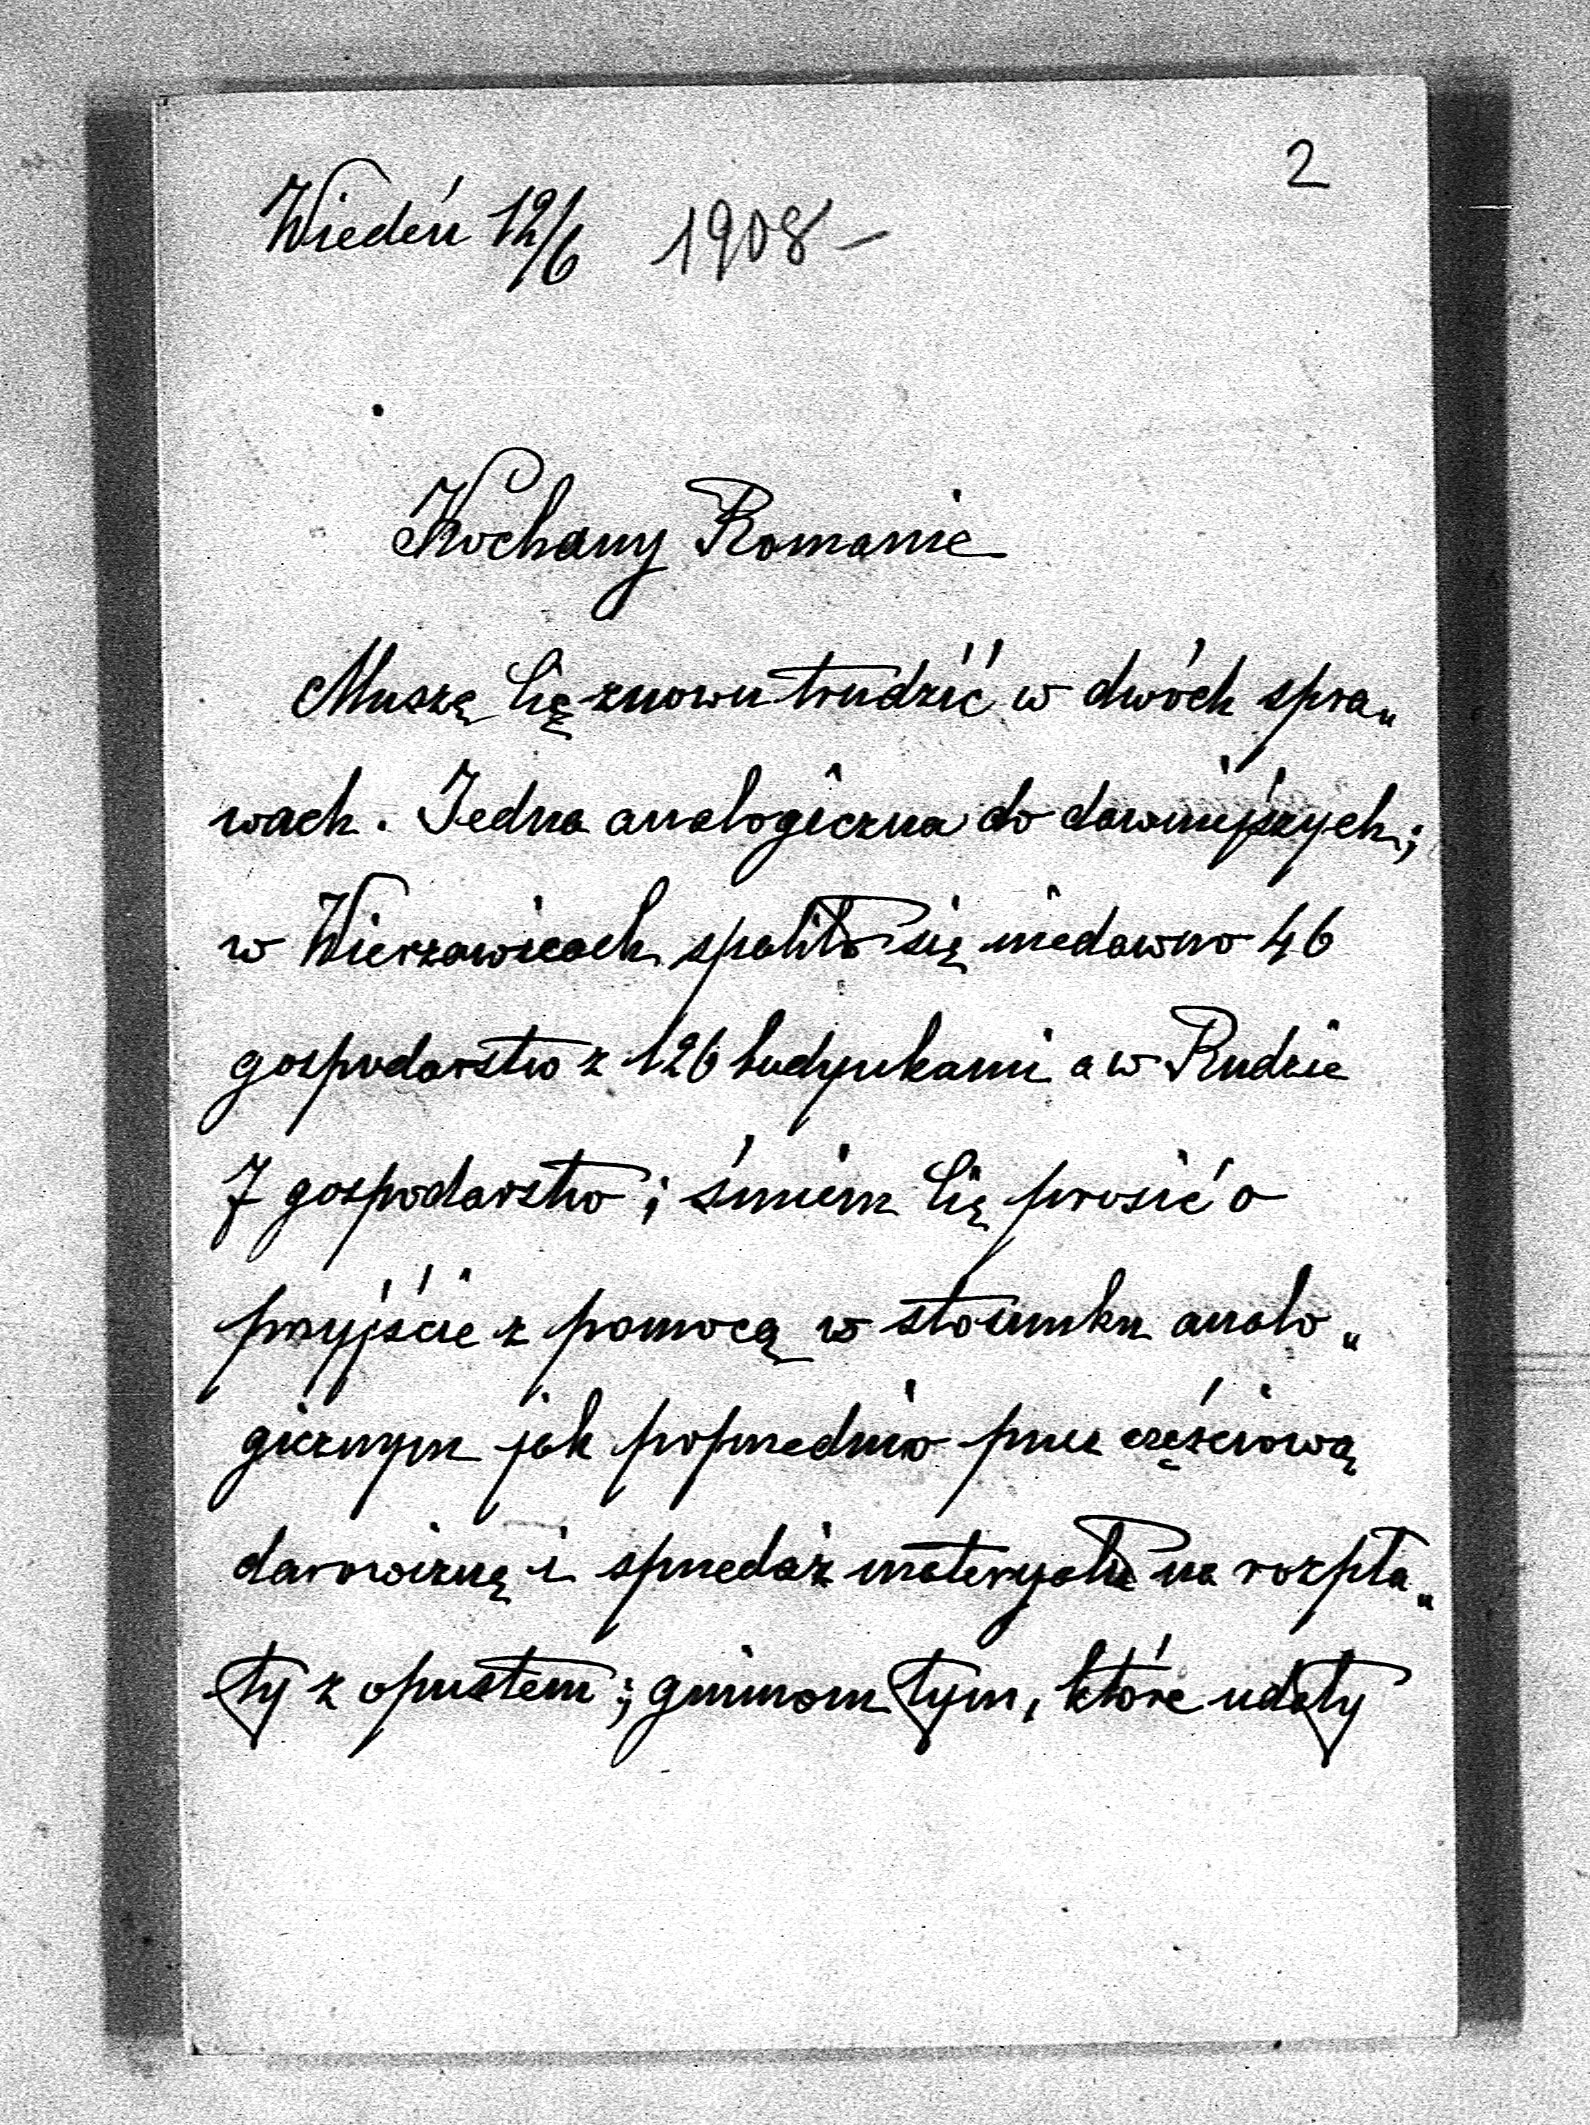 2
Wiedeń 12/6 1908 –
Kochany Romanie
Muszę Cię znowu trudzić w dwóch spra„
wach. Jedna analogiczna do dawniejszych;
w Wierzawicach spaliło się niedawno 46
gospodarstw z 126 budynkami a w Rudzie
7 gospodarstw; śmiem Cię prosić o
przyjście z pomocą w stosunku analo„
gicznym jak poprzednio przez częściową
darowiznę i sprzedaż materyału na rozpła„
ty z opustem; gminom tym, które udały